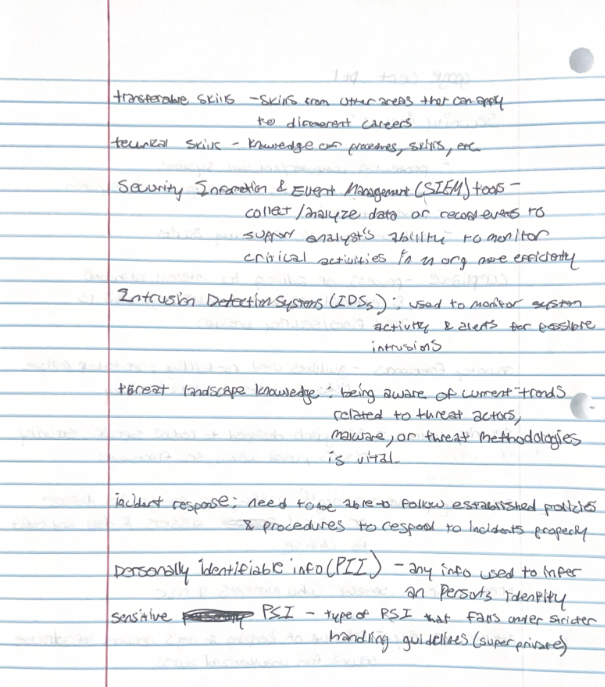 transferable skills - skills from other areas that can apply
to different careers
technical skills - knowledge of processes, skills, etc.
Security Information & Event Management (SIEM) tools -
collect/analyze data or record events to
support analyst's ability to monitor
critical activities in an org more efficiently
Intrusion Detection Systems (IDSs): used to monitor system
activity & alerts for possible
intrusions
threat landscape knowledge: being aware of current trends
related to threat actors,
malware, or threat methodologies
is vital.
incident response: need to be able to follow established policies
& procedures to respond to incidents properly
personally identifiable info (PII) - any info used to infer
an persons identity
sensitive PSI - type of PSI that falls under stricter
handling guidelines (super private)